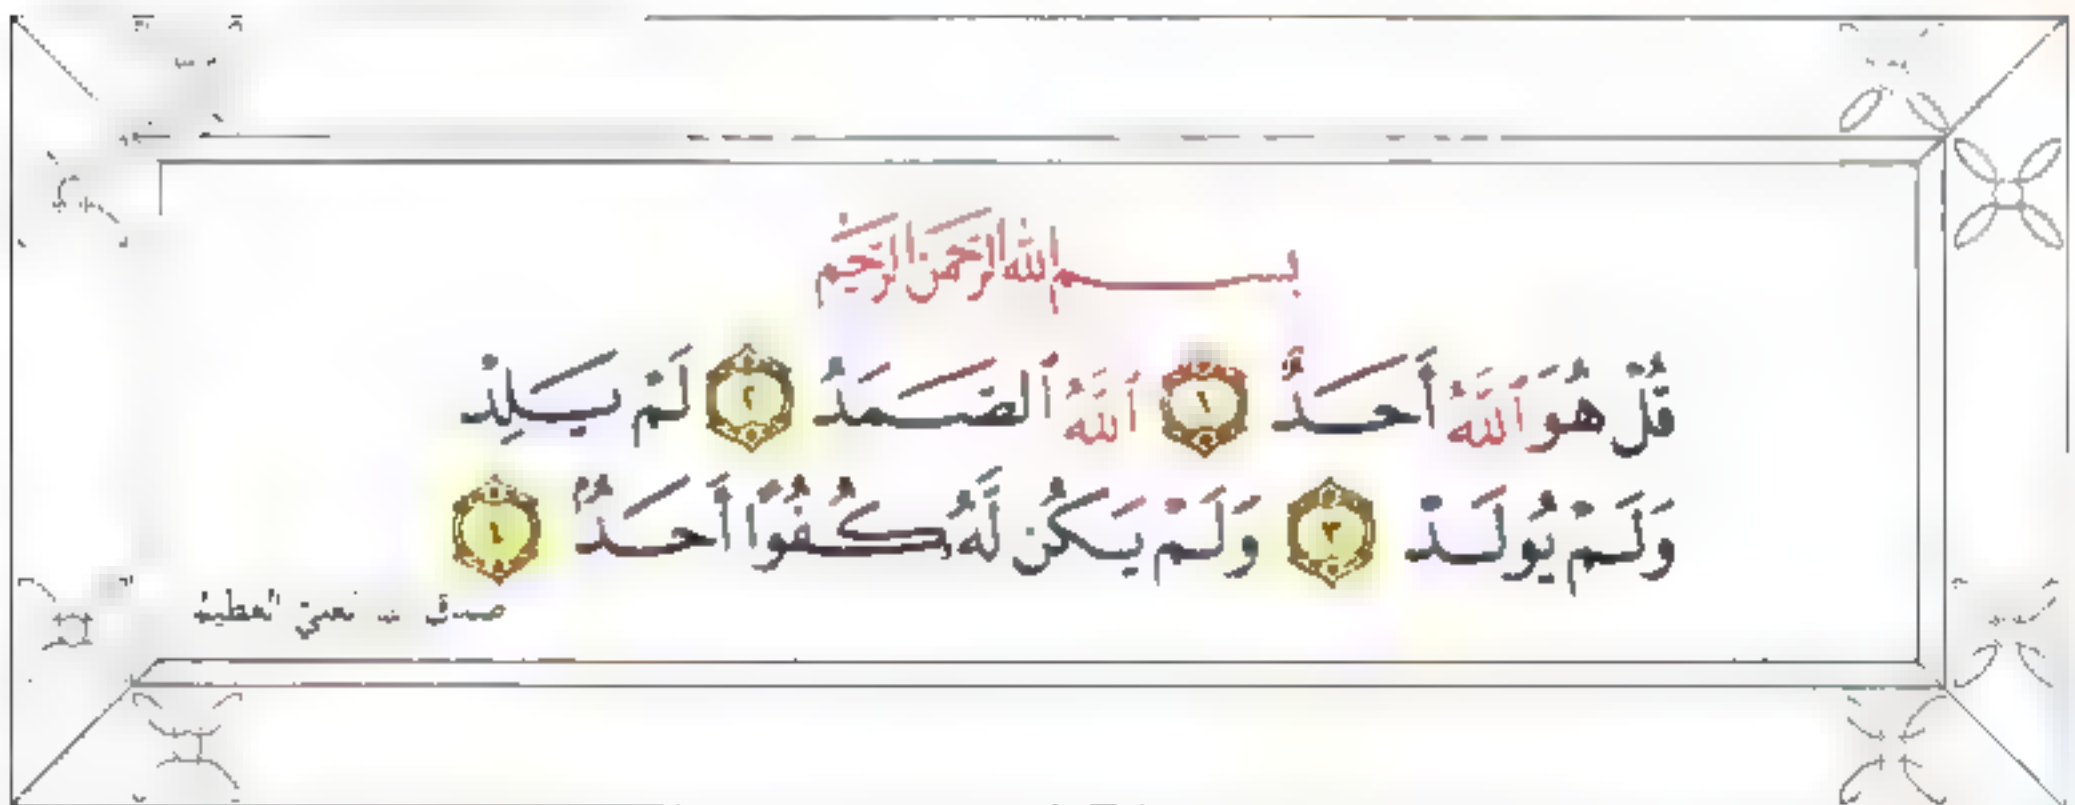 بسم الله الرحمن الرحيم
قُلْ هُوَ ٱللَّهُ أَحَدٌ ١ ٱللَّهُ ٱلصَّمَدُ ٢ لَمْ يَلِدْ
وَلَمْ يُولَدْ ٣ وَلَمْ يَكُن لَّهُۥ كُفُوًا أَحَدٌۢ ٤
العظيم